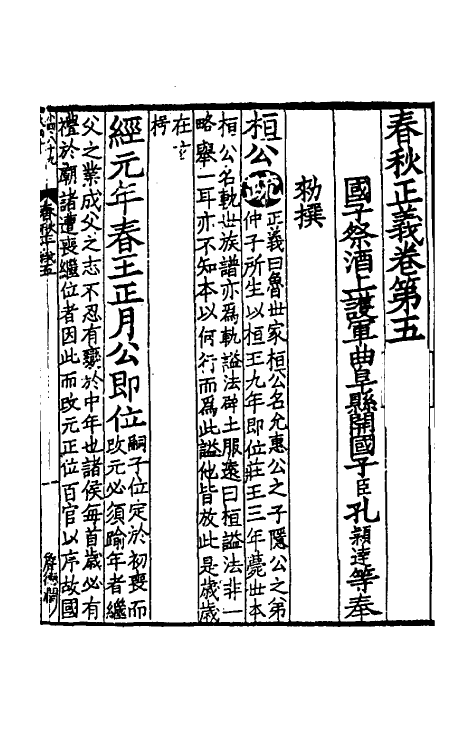 春秋正義卷第五
國子祭酒上護軍曲阜縣開國子臣孔穎達等奉
勑撰
桓公疏正義曰魯世家桓公名允惠公之子隱公之弟
仲子所生以桓王九年即位莊王三年薨世本
桓公名軌世族譜亦爲軌謚法辟土服遠曰桓謚法非一
略舉一耳亦不知本以何行而爲此謚他皆放此是歲歲
在玄
枵
經元年春王正月公即位嗣子位定於初喪而
改元必須踰年者繼
父之業成父之志不忍有變於中年也諸侯每首歲必有
禮於廟諸遭喪繼位者因此而改元正位百官以序故國